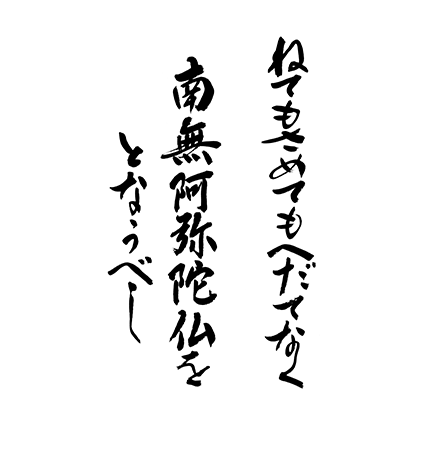 ねてもさめてもへだてなく
南無阿弥陀仏を
となうべし